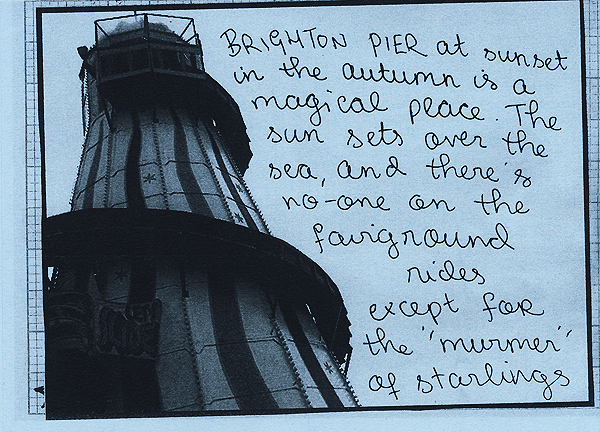 BRIGHTON PIER at sunset
in the autumn is a
magical place. The
sun sets over the
sea, and there's
no-one on the
fairground
rides
except for
the "murmer"
of starlings